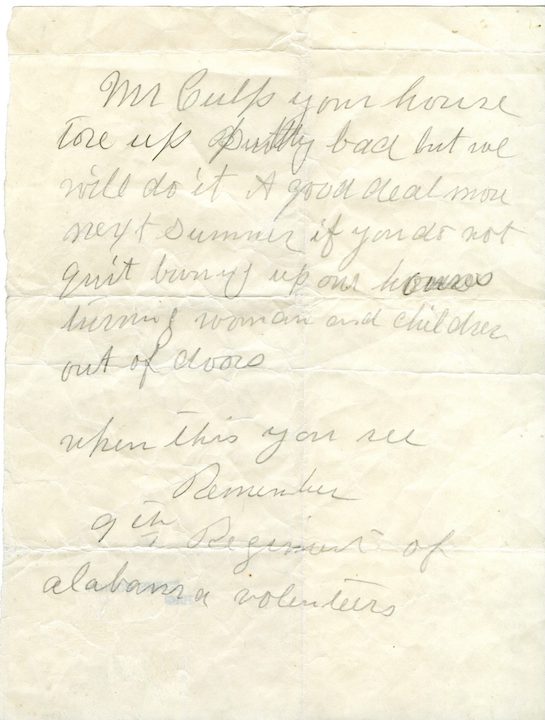 Mr Culps your house
tore up puttty bad but we
will do it A good deal more
next summer if you do not
quit burnig up our houses
turning woman and children
out of doors
when this you see
Remember
9th Regiment of
alabama volenteers